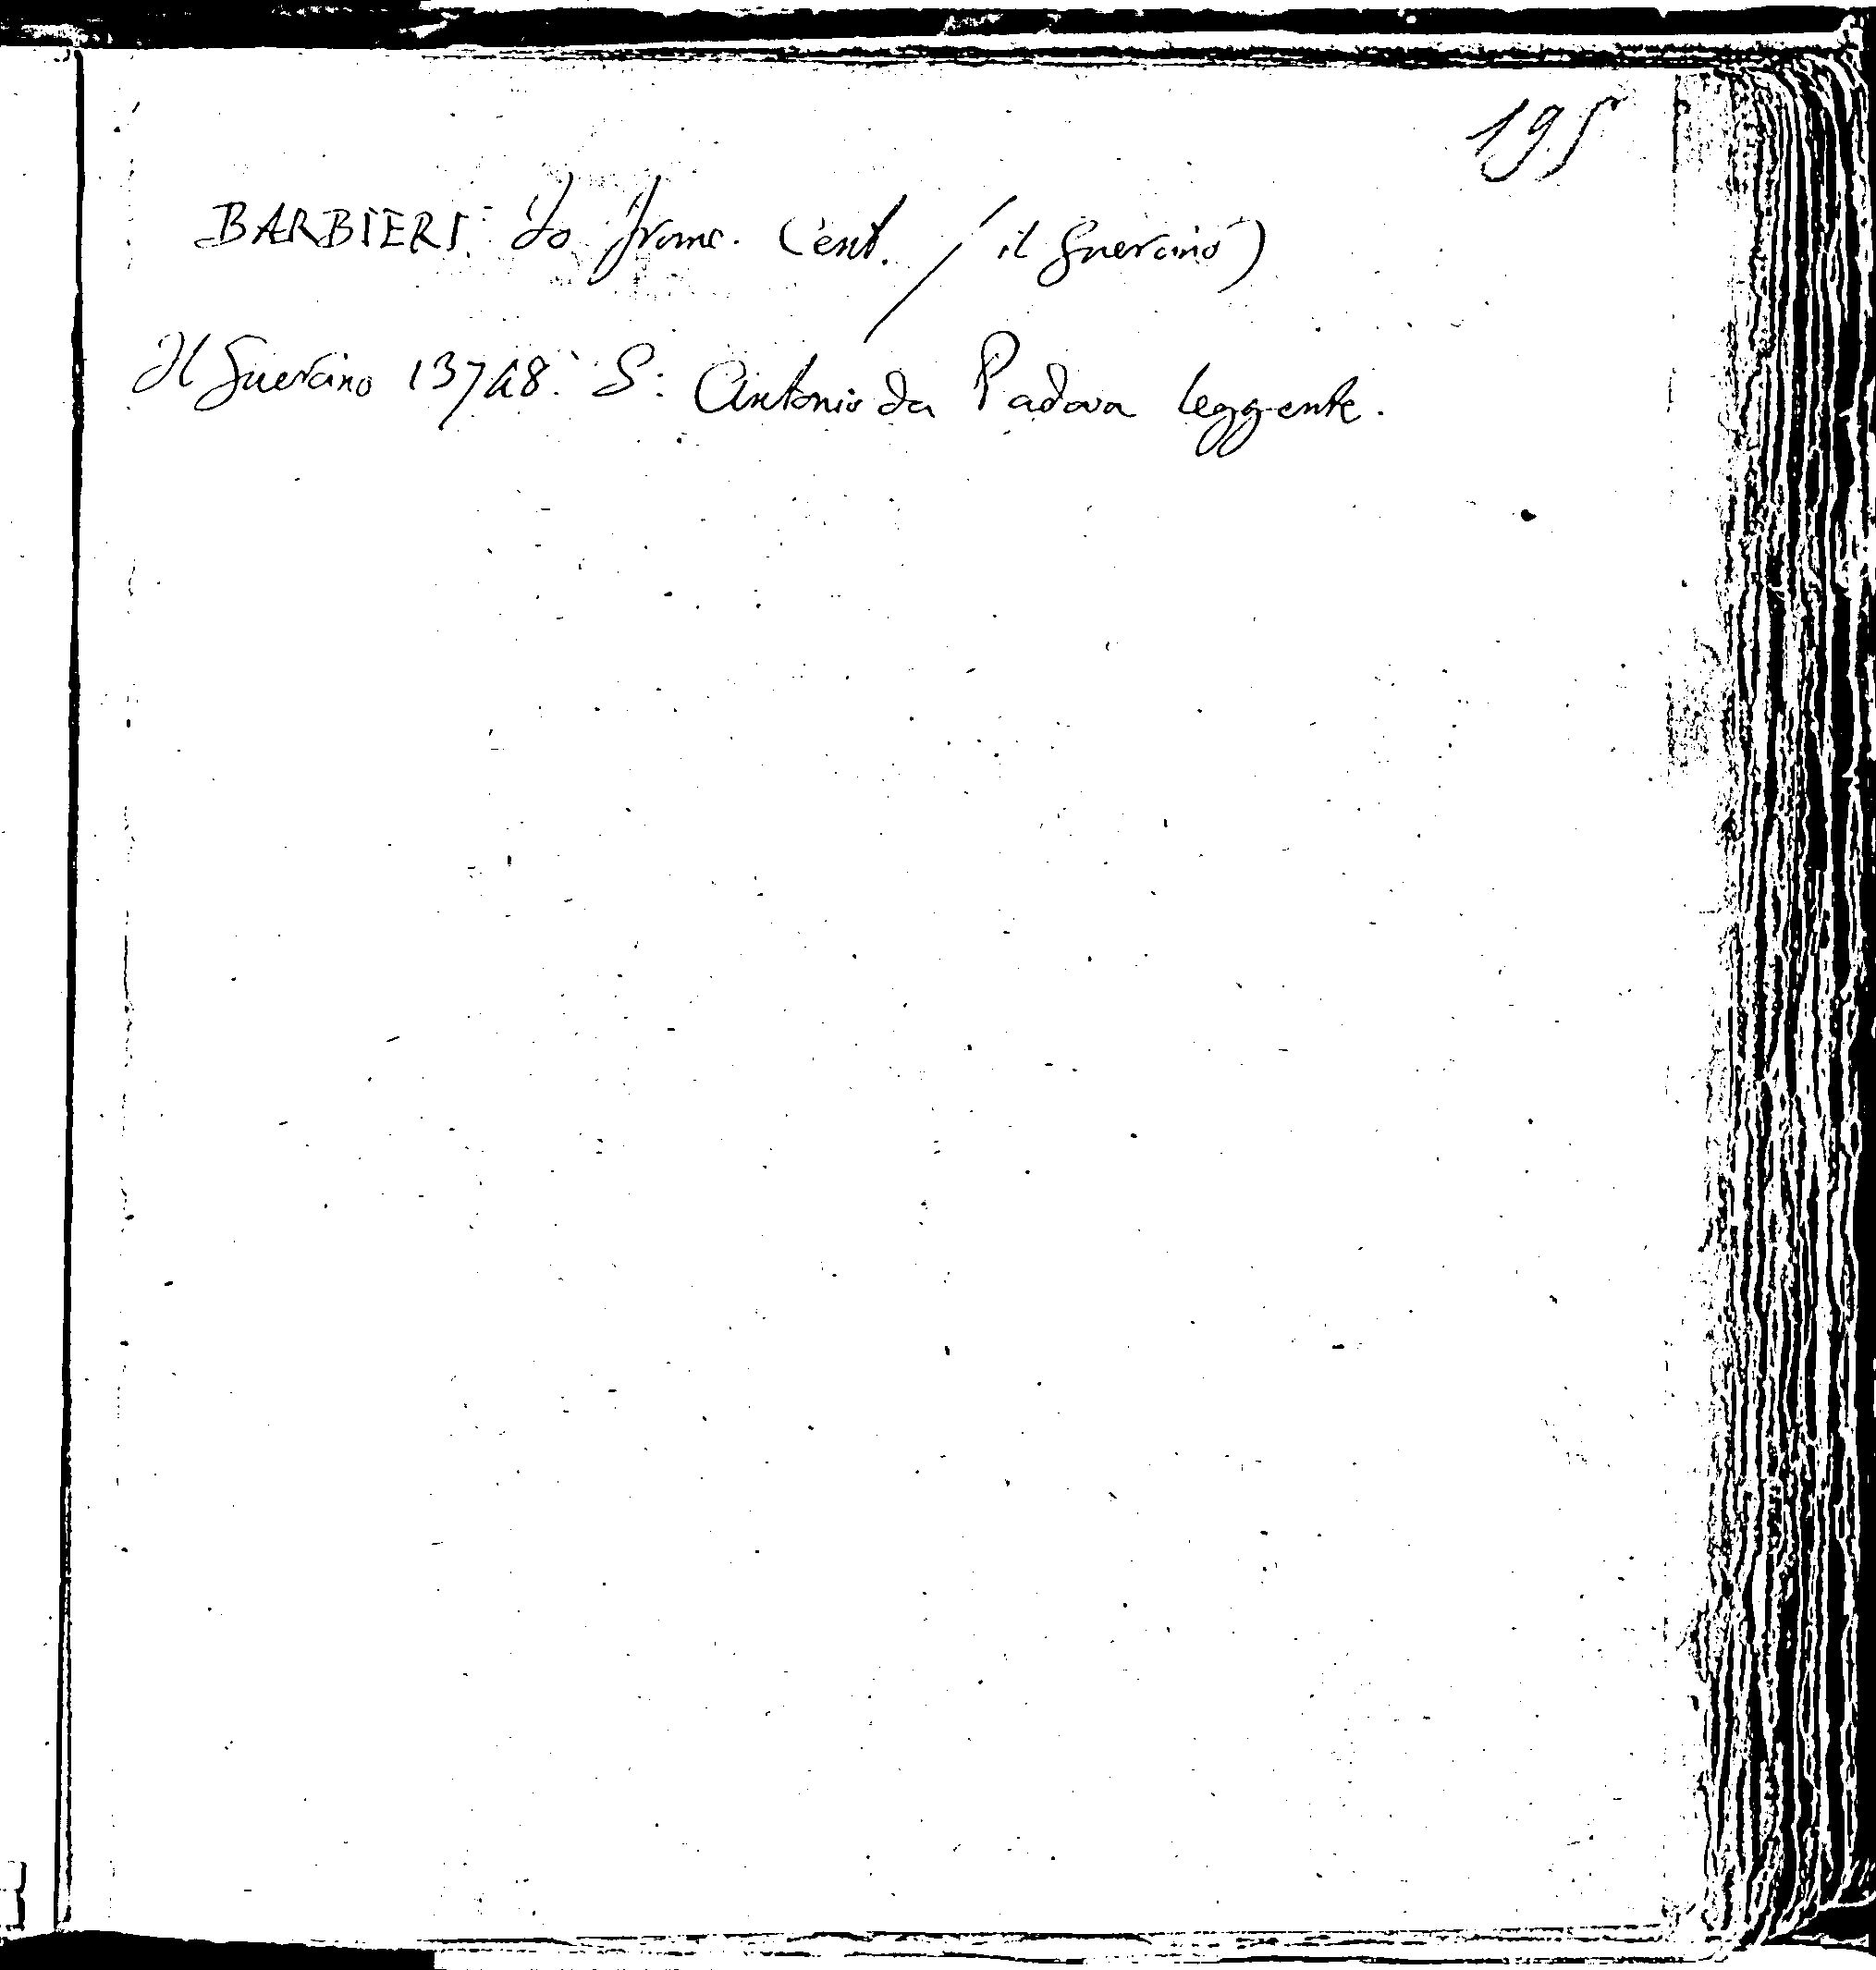 195
BARBIERI Jo franc. Cent. / il Guercino)
Il Guercino 13748. S. Antonio da Padova leggente.